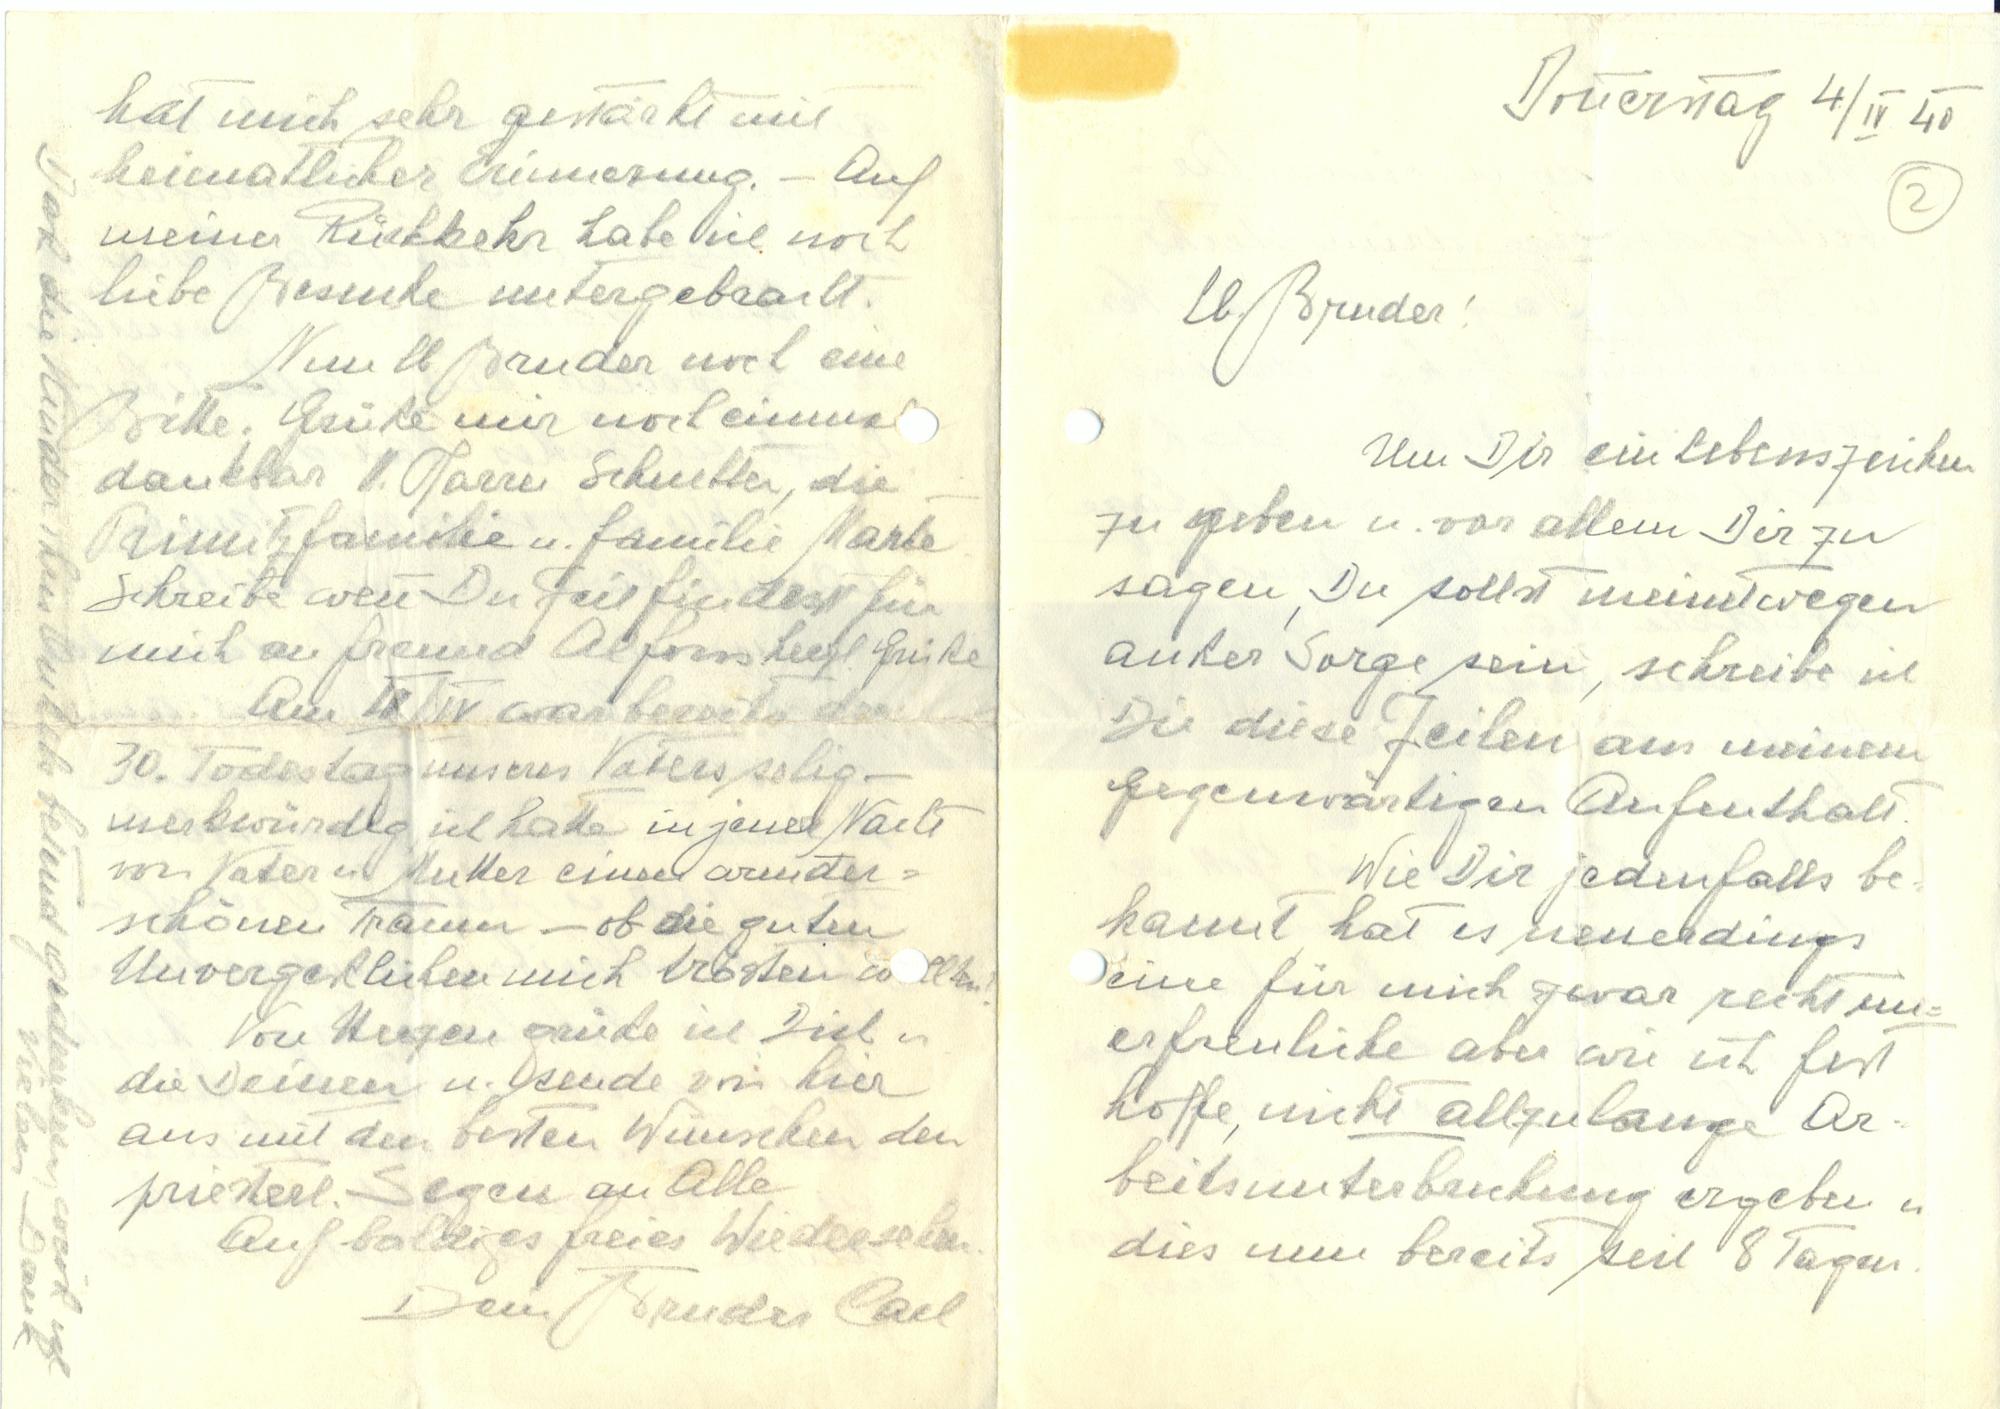 Donnerstag 4/IV 40
2
Lb. Bruder!
Um Dir ein Lebenszeichen
zu geben u. vor allem Dir zu
sagen, Du sollst meinetwegen
außer Sorge sein, schreibe ich
Dir diese Zeilen aus meinem
gegenwärtigen Aufenthalt.
Wie Dir jedenfalls be-
kannt hat es neuerdings
eine für mich zwar recht un=
erfreuliche aber wie ich fest
hoffe, nicht allzulange Ar-
beitsunterbrechung ergeben u
dies nun bereits seit 8 Tagen.
hat mich sehr gestärkt mit
heimatlicher Erinnerung. – Auf
meiner Rückkehr habe ich noch
liebe Besuche untergebracht.
Nun lb Bruder noch eine
Bitte. Grüße mir noch einmal
dankbar H. Pfarrer, die
Primizfamilie u. Familie Marte
Schreibe wenn Du Zeit findest für
mich an Freund Alfons herzl. Grüße
Am IV war bereits der
30. Todestag unseres Vaters selig –
merkwürdig ich hatte in jener Nacht
von Vater u Mutter einen wunder=
schönen Traum – ob die guten
Unvergeßlichen mich trösten wollten?
Von Herzen grüße ich Dich u
die Deinen u. sende von hier
aus mit den besten Wünschen den
priesterl. Segen an Alle
Auf baldiges freies Wiedersehen.
Dein Bruder Carl
die Kinder ihres Onkels betend gedenken
Vielen Dank